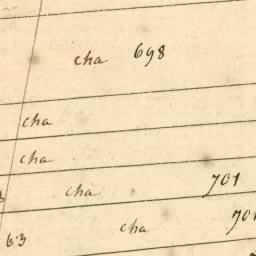 cha 698
cha
cha
cha 701
cha
63